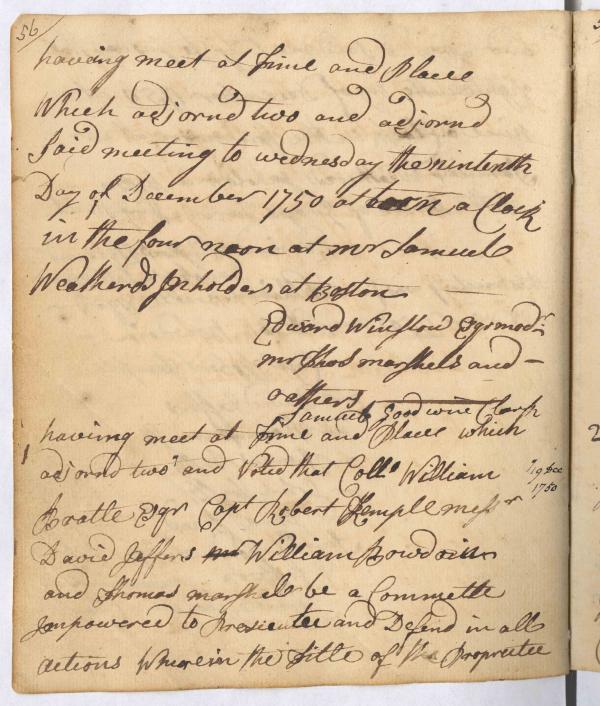 56
having meet at Time and Place
Which adjornd two and adjornd
Said meeting to wednesday the ninteenth
Day of December 1750 at ten a Clock
in the four noon at mr Samuel
Weatherds Inholders at Boston
Edward Winslow Esqr modr
mr Thos marshels and
others
Samuel Goodwine Clark
having meet at Time and Place which
adjornd two and Voted that Collo William
19 Dec
1750
Bratle Esqr Capt Robert Temple messr
David Jeffers William Bowdoin
and Thomas marshel be a Committe
Impowered to Prosicutee and Defend in all
actions Wherein the Title of the Proprietee